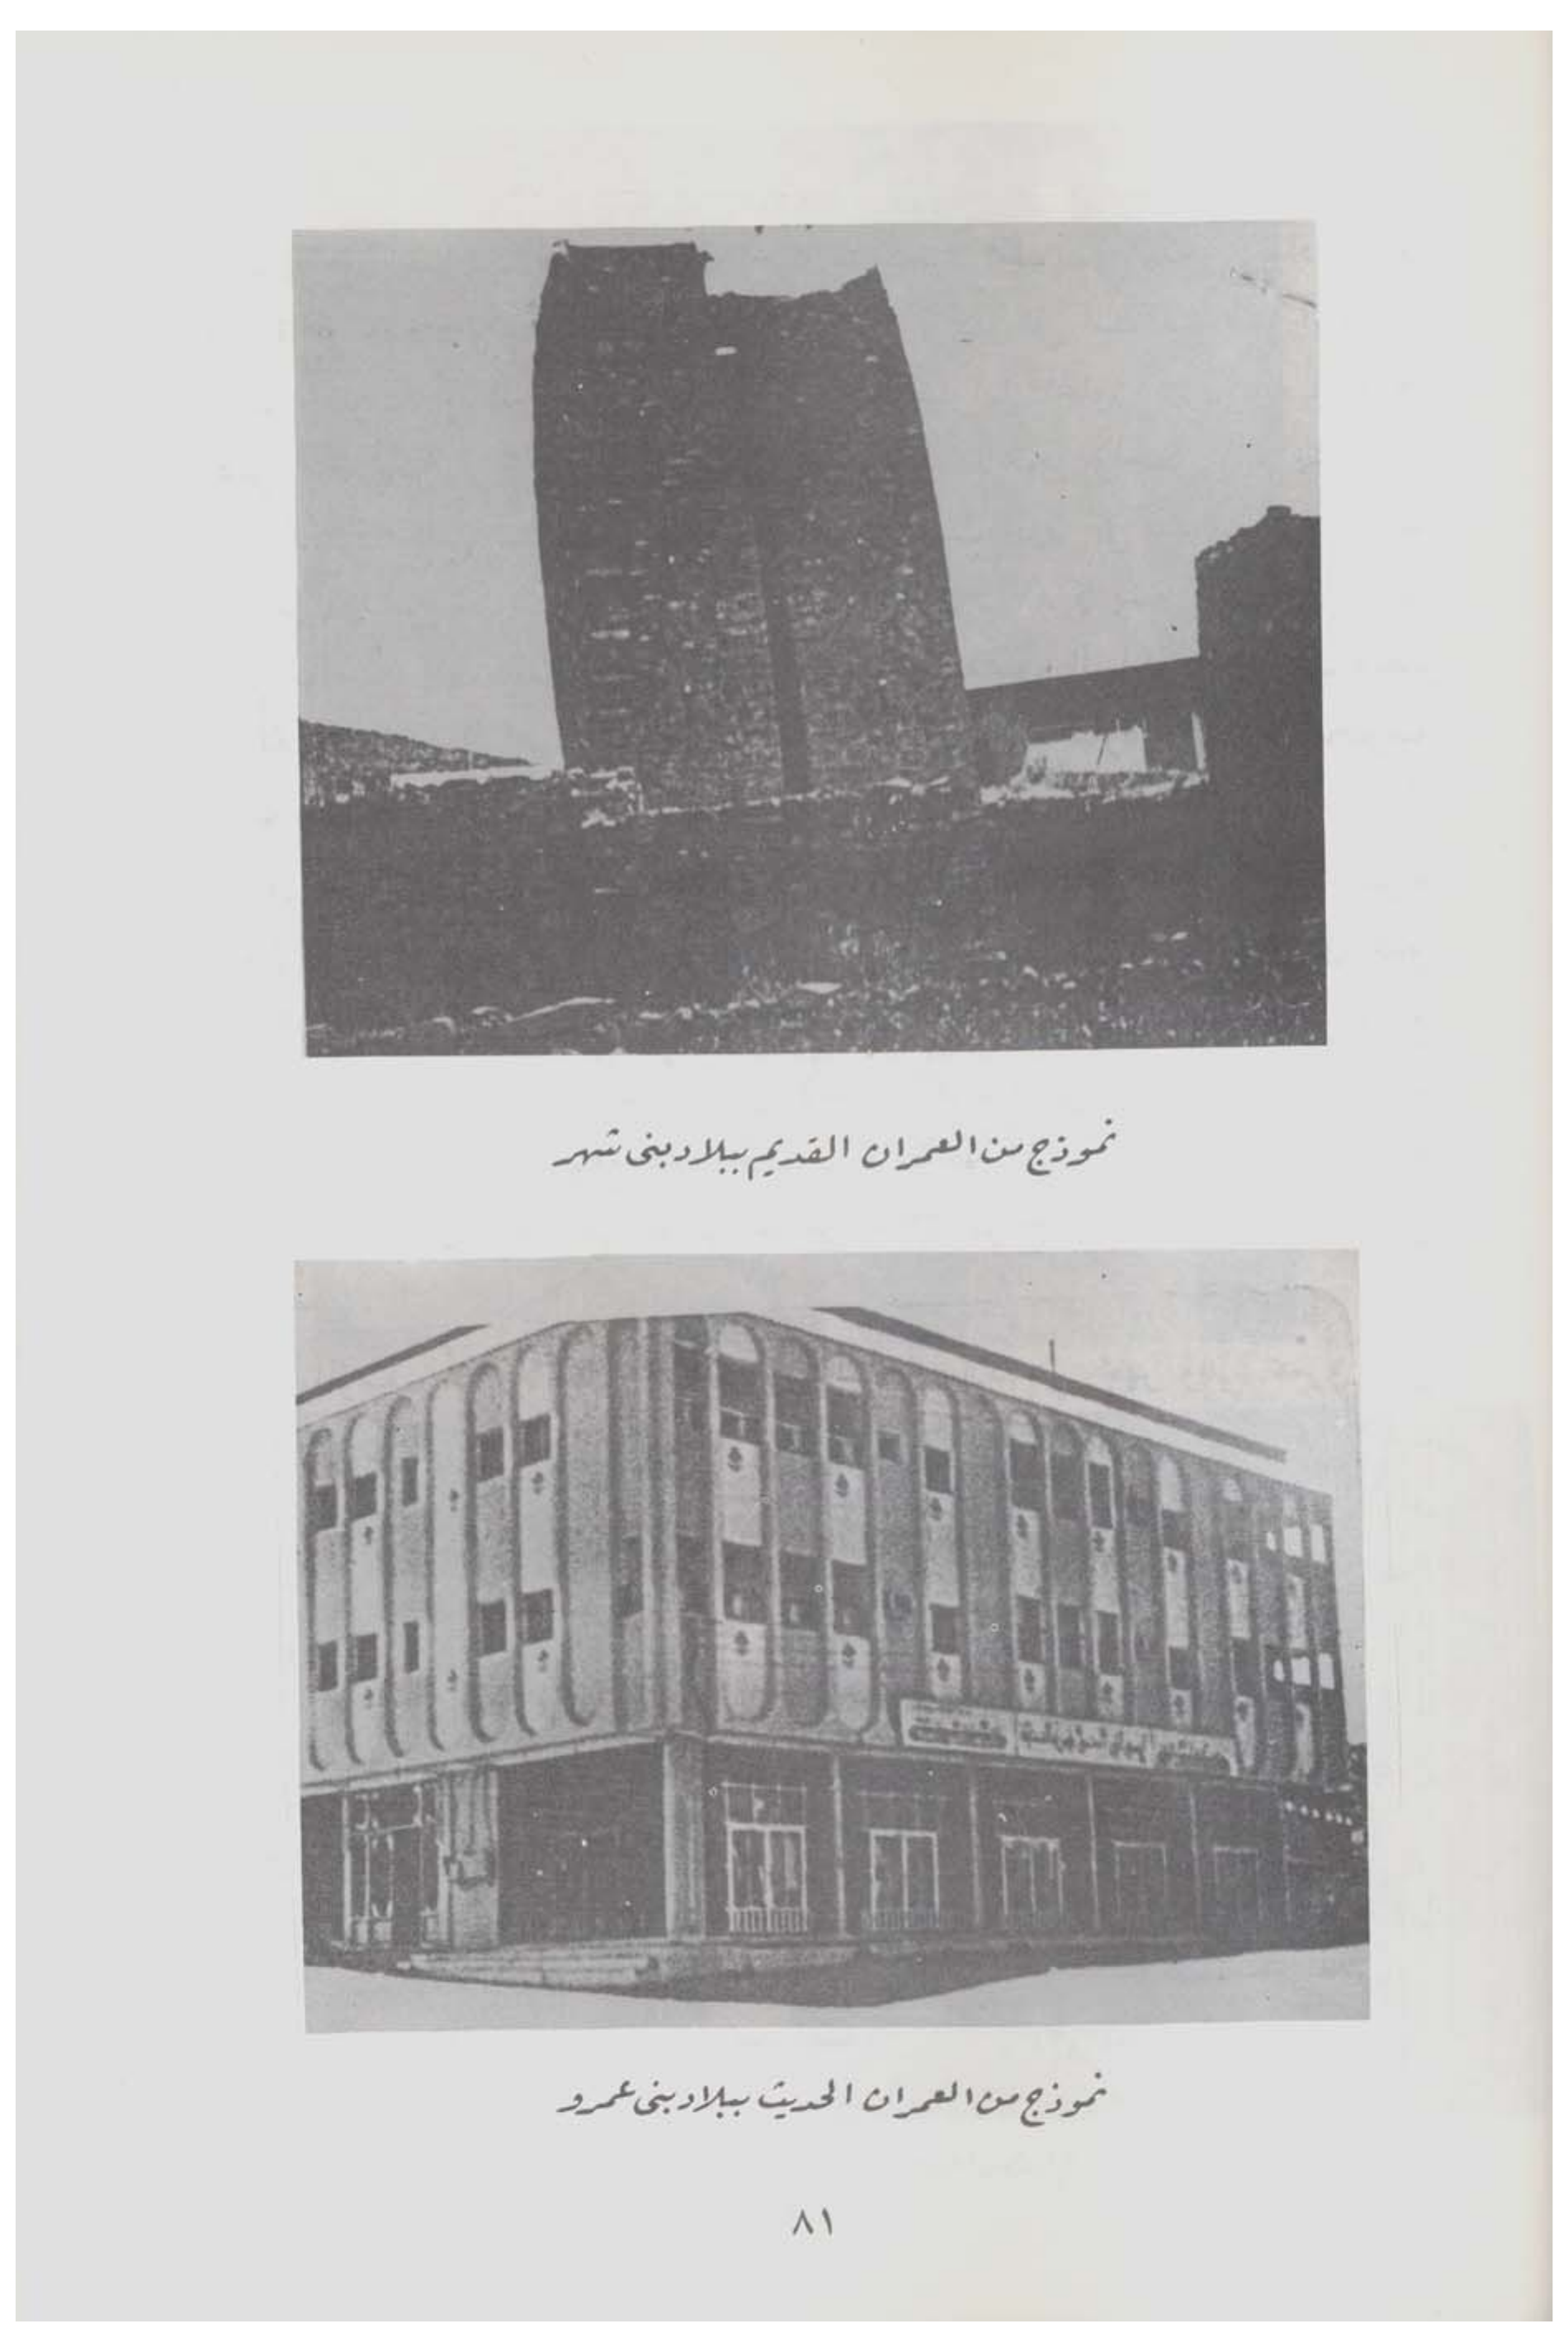 نموذج من العمران القديم ببلاد بنى شهر
نموذج من العمران الحديث ببلاد بنى عمرو
٨١